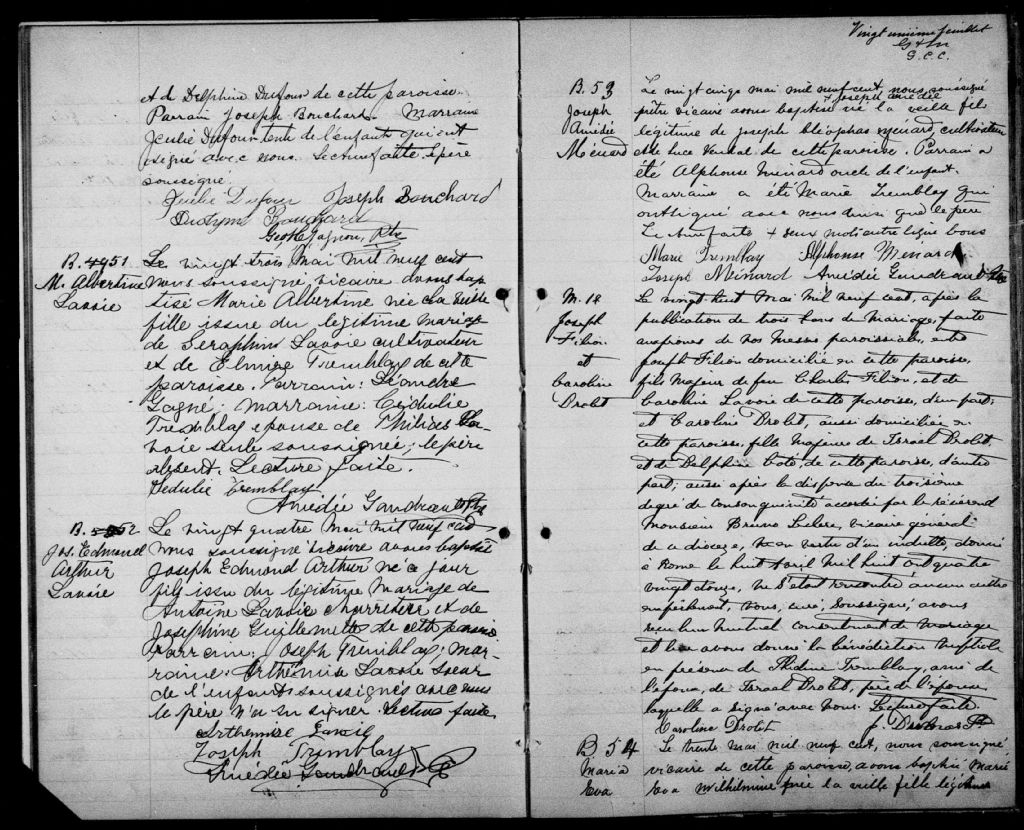 et de Delphine Dufour de cette paroisse.
Parrain Joseph Bouchard. Marraine
Julie Dufour tente de l'enfant qui ont
signé avec nous. Lecture faite, le père
soussigné.
Julie Dufour Joseph Bouchard
Bouchard
Geo H Gagnon, Ptre
B. 51
M. Albertine
Lavoie
Le vingt trois Mai mil neuf cent
nous soussigné, vicaire avons bap
tisé Marie Albertine née la veille
fille issue du légitime mariage
de Séraphin Lavoie cultivateur
et de Elmire Tremblay de cette
paroisse. Parrain: Léandre
Gagné; marraine: Cédulie
Tremblay épouse de Philias La-
voie seule soussignée; le père
absent. Lecture faite.
Sedulie Tremblay
Amédée Gaudreault Ptre
B. 52
Jos. Edmond
Arthur
Lavoie
Le vingt quatre Mai mil neuf cent
nous soussigné vicaire avons baptisé
Joseph Edmond Arthur né ce jour
fils issu du légitime mariage de
Antoine Lavoie charretier et de
Josephine Guillemette de cette parois
Parrain: Joseph Tremblay; mar-
raine: Arthémise Lavoie soeur
de l'enfant soussignés avec nous
le père n'a su signer. Lecture faite.
Arthemise Lavoie
Joseph Tremblay
Amédée Gaudreault Ptre
Vingt unième feuillet
G.C.C.
B. 53
Joseph
Amédée
Ménard
Le vingt cinq mai mil neuf cent, nous soussigné
Joseph Amédée
prêtre vicaire avons baptisé né la veille fils
légitime de Joseph Cléophas Ménard, cultivateur
et de Luce de cette paroisse. Parrain a
été Alphonse Ménard oncle de l'enfant.
Marraine a été Marie Tremblay qui
ont signé avec nous ainsi que le père
Lecture faite + deux mots entre ligne bons
Marie Tremblay Alphonse Ménard
Joseph Ménard Amédée Gaudreault Ptre
M. 18
Joseph
Filion
et
Caroline
Drolet
Le vingt huit Mai mil neuf cent, après la
publication de trois bans de Mariage, faite
aux prones de nos Messes paroissiales, entre
Joseph Filion domicilié en cette paroisse,
fils Majeur de feu Charles Filion, et de
Caroline Lavoie de cette paroisse, d'une part;
et Caroline Drolet, aussi domiciliée en
cette paroisse, fille Majeure de Israel Drolet,
et de Delphine Coté, de cette paroisse, d'autre
part; aussi après la dispense du troisième
degré de consanguinité accordée par le révérend
Monsieur Bruno Leclerc, vicaire général
de ce diocèze, en vertu d'un indulte, donné
à Rome le huit Avril mil huit cent quatre
vingt douze, ne s'étant rencontré aucun autre
empêchement, nous, curé, soussigné, avons
reçu leur mutuel consentement de mariage
et leur avons donné la bénédiction nuptiale
en présence de Tremblay, ami de
l'époux, de Israel Drolet, père de l'épouse
laquelle a signé avec nous. Lecture faite.
Caroline Drolet
B 54
Maria
Eva
Le trente Mai mil neuf cent, nous soussigné
vicaire de cette paroisse, avons baptisé Marie
Eva Wilhelmine née la veille fille légitime